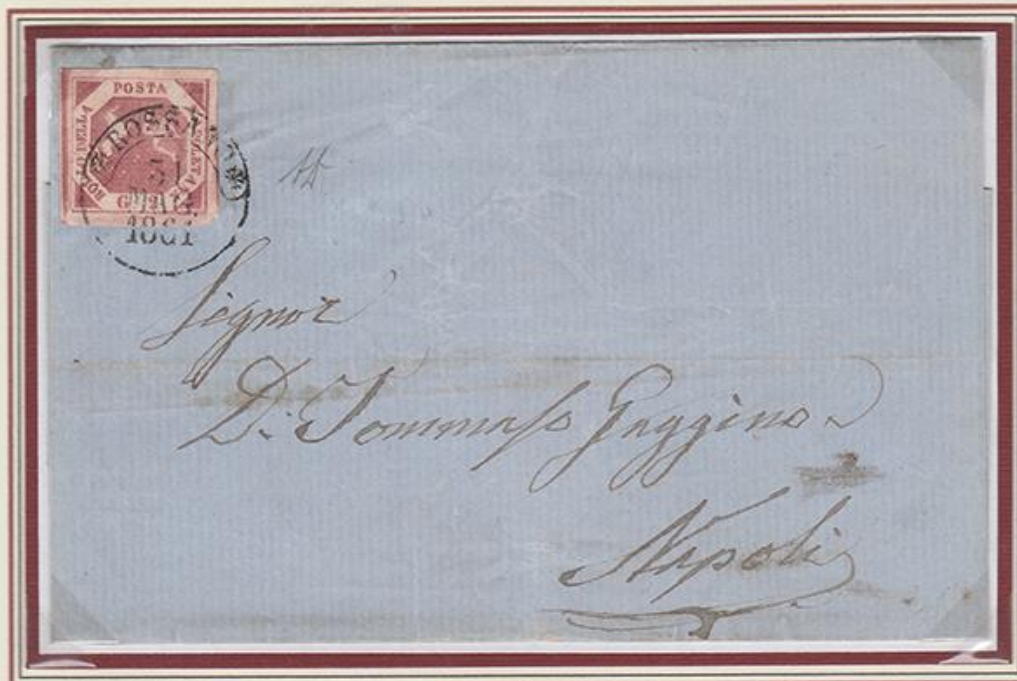 POSTA
BOLLO DELLA
NAPOLETANA
G. 2
ROSSANO
31
MAG.
1861
Signor
D. Tommaso Gaggino
Napoli